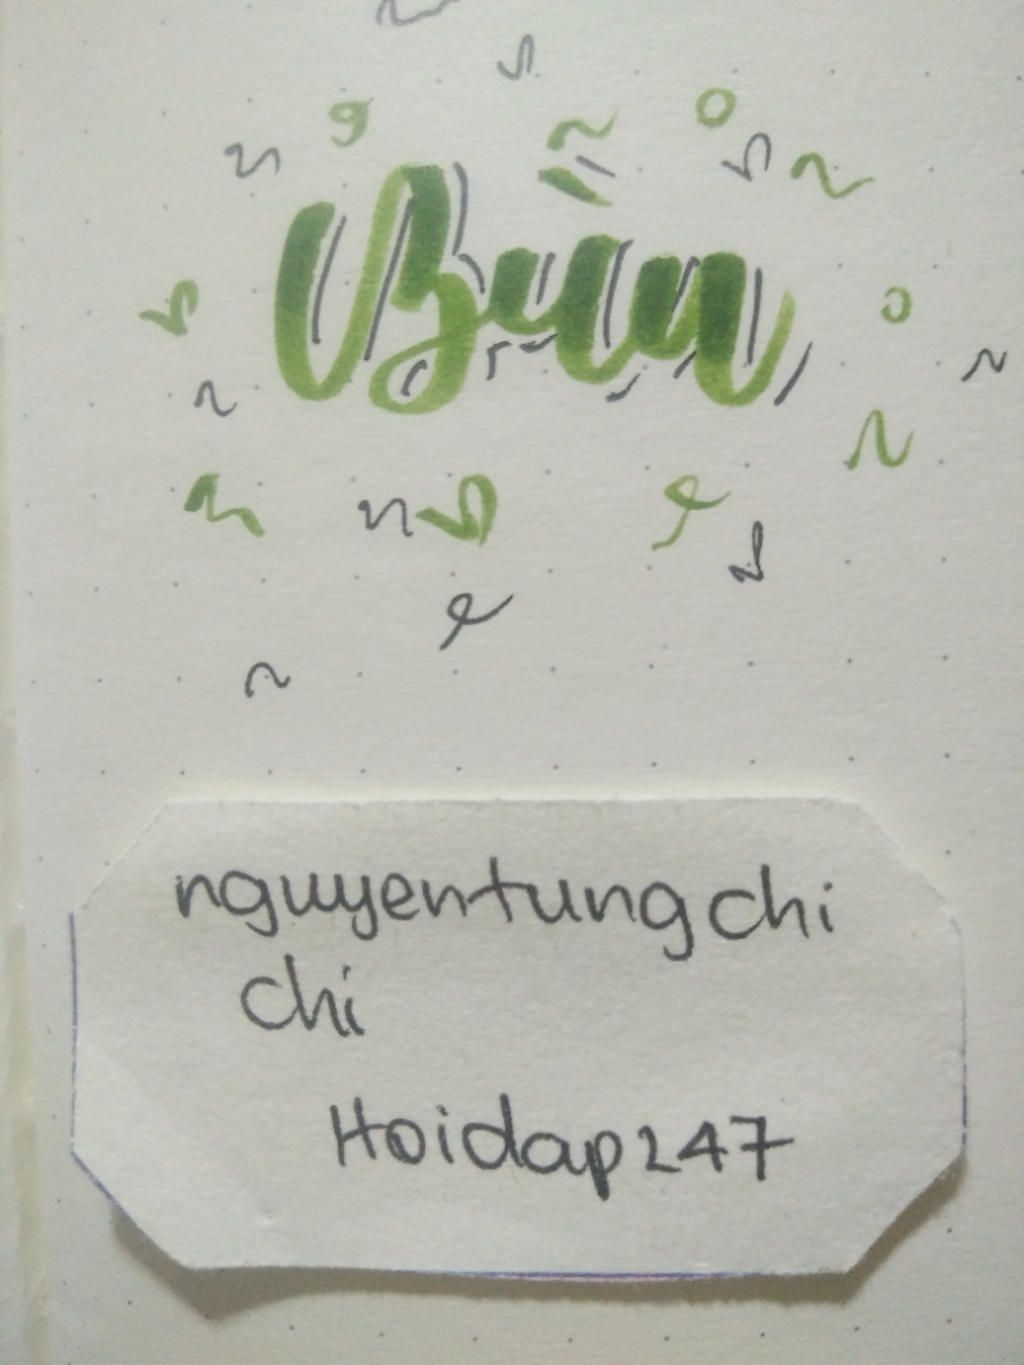 Bùn
nguyentungchi
chi
Hoidap247